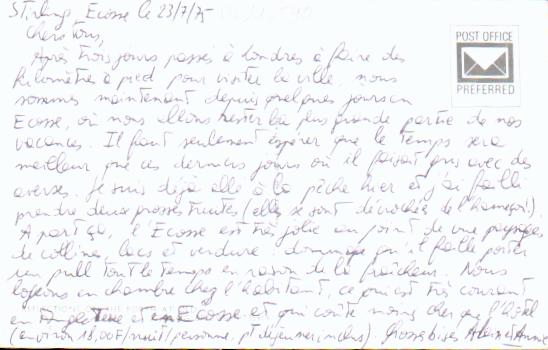 Stirling, Ecosse le 23/7/75
Chers tous,
Après trois jours passés à Londres à faire des
kilomètres à pied pour visiter la ville, nous
sommes maintenant depuis quelques jours en
Ecosse, où nous allons rester la plus grande partie de nos
vacances. Il faut seulement espérer que le temps sera
meilleur que ces derniers jours où il faisait gris avec des
averses. Je suis déjà allé à la pêche hier et j'ai failli
prendre deux grosses truites (elles se sont décrochées de l'hameçon!).
A part ça, l'Ecosse est très jolie au point de vue paysages
de collines, lacs et verdure : dommage qu'il faille porter
un pull tout le temps en raison de la fraîcheur. Nous
logeons en chambre chez l'habitant, ce qui est très courant
en Angleterre et en Ecosse et qui coûte moins cher que l'hôtel
(environ 18,00F/nuit/personne, pt déjeuner inclus) Grosses bises Anne
POST OFFICE
PREFERRED